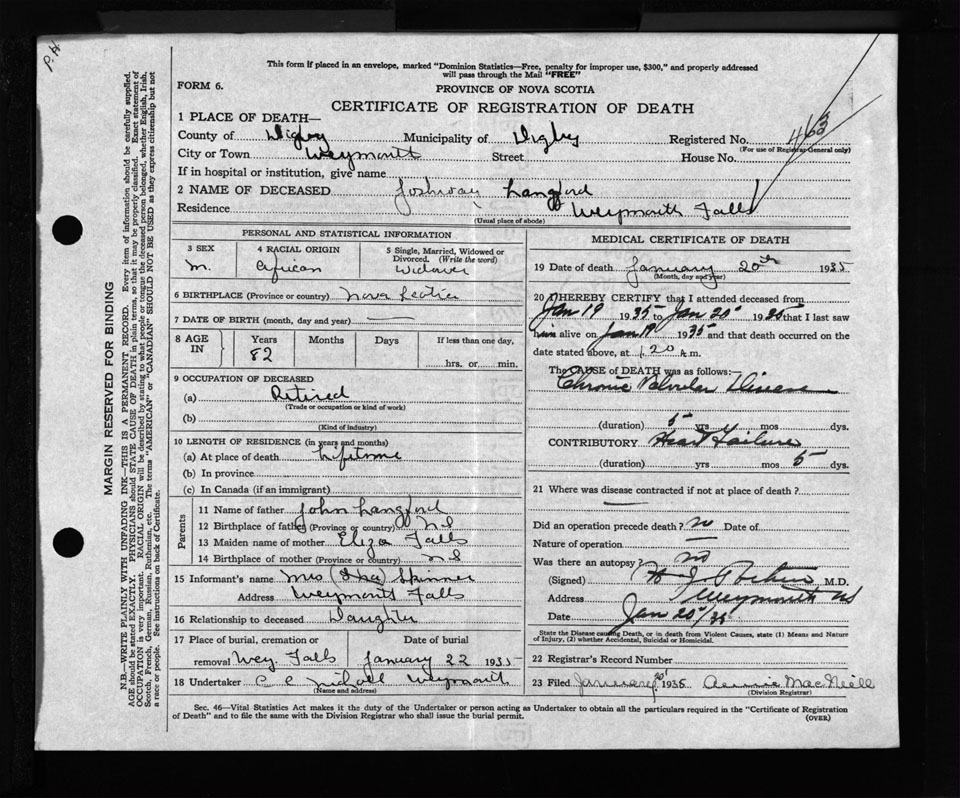 P.H.
This form if placed in an envelope, marked "Dominion Statistics—Free, penalty for improper use, $300," and properly addressed
will pass through the Mail "FREE"
FORM 6.
PROVINCE OF NOVA SCOTIA
CERTIFICATE OF REGISTRATION OF DEATH
1 PLACE OF DEATH—
County of Digby Municipality of Digby Registered No.
(For use of Registrar-General only)
City or Town Weymouth Street House No.
If in hospital or institution, give name
2 NAME OF DECEASED Joshway Langford
Residence Weymouth Falls
(Usual place of abode)
PERSONAL AND STATISTICAL INFORMATION
3 SEX 4 RACIAL ORIGIN 5 Single, Married, Widowed or
Divorced. (Write the word)
M. African Widower
6 BIRTHPLACE (Province or country) Nova Scotia
7 DATE OF BIRTH (month, day and year) —
8 AGE IN Years Months Days If less than one day,
82 hrs. or min.
9 OCCUPATION OF DECEASED
(a) Retired
(Trade or occupation or kind of work)
(b)
(Kind of industry)
10 LENGTH OF RESIDENCE (in years and months)
(a) At place of death Lifetime
(b) In province
(c) In Canada (if an immigrant)
Parents
11 Name of father John Langford
12 Birthplace of father (Province or country) N S
13 Maiden name of mother Eliza Falls
14 Birthplace of mother (Province or country) N S
15 Informant's name Mrs Skinner
Address Weymouth Falls
16 Relationship to deceased Daughter
17 Place of burial, cremation or Date of burial
removal Wey. Falls January 22 1935
18 Undertaker Weymouth
(Name and address)
MEDICAL CERTIFICATE OF DEATH
19 Date of death January 20th 1935
(Month, day and year)
20 I HEREBY CERTIFY that I attended deceased from
Jan 19 1935 to Jan 20 1935 that I last saw
him alive on Jan 19 1935 and that death occurred on the
date stated above, at 1.20 A.m.
The CAUSE of DEATH was as follows:—
Chronic Valvular Disease
(duration) 5 yrs mos dys.
CONTRIBUTORY Heart Failure
(duration) yrs mos 5 dys.
21 Where was disease contracted if not at place of death?
Did an operation precede death? no Date of
Nature of operation —
Was there an autopsy? no
(Signed) M.D.
Address Weymouth
Date Jan 20/35
State the Disease causing Death, or in death from Violent Causes, state (1) Means and Nature
of Injury, (2) whether Accidental, Suicidal or Homicidal.
22 Registrar's Record Number
23 Filed January 20 1935 Annie MacNeill
(Division Registrar)
Sec. 46—Vital Statistics Act makes it the duty of the Undertaker or person acting as Undertaker to obtain all the particulars required in the "Certificate of Registration
of Death" and to file the same with the Division Registrar who shall issue the burial permit. (OVER)
MARGIN RESERVED FOR BINDING
N.B.—WRITE PLAINLY WITH UNFADING INK—THIS IS A PERMANENT RECORD. Every item of information should be carefully supplied.
AGE should be stated EXACTLY. PHYSICIANS should STATE CAUSE OF DEATH in plain terms, so that it may be properly classified. Exact statement of
OCCUPATION is very important. RACIAL ORIGIN will be described by stating to what people or tongue the deceased person belonged, whether English, Irish,
Scotch, French, German, Russian, Ruthenian, etc. The terms "AMERICAN" or "CANADIAN" SHOULD NOT BE USED as they express citizenship but not
a race or people. See instructions on back of Certificate.